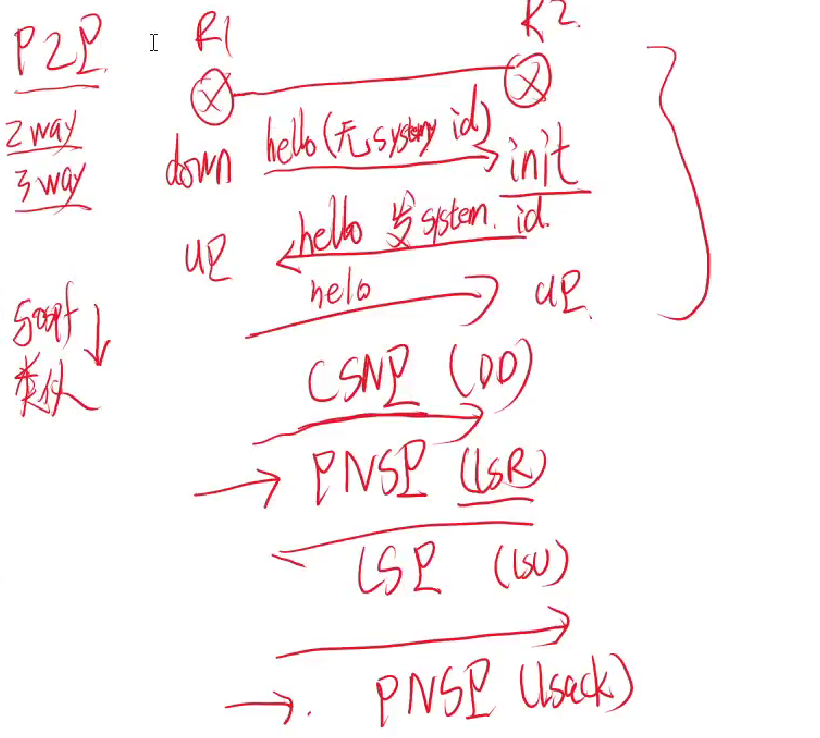 P2P
R1
R2
2 way
3 way
down
hello (无 system id)
init
up
hello 发 system id
helo
up
与ospf
类似
CSNP (DD)
PNSP (lsR)
LSP (lSU)
PNSP (lsack)